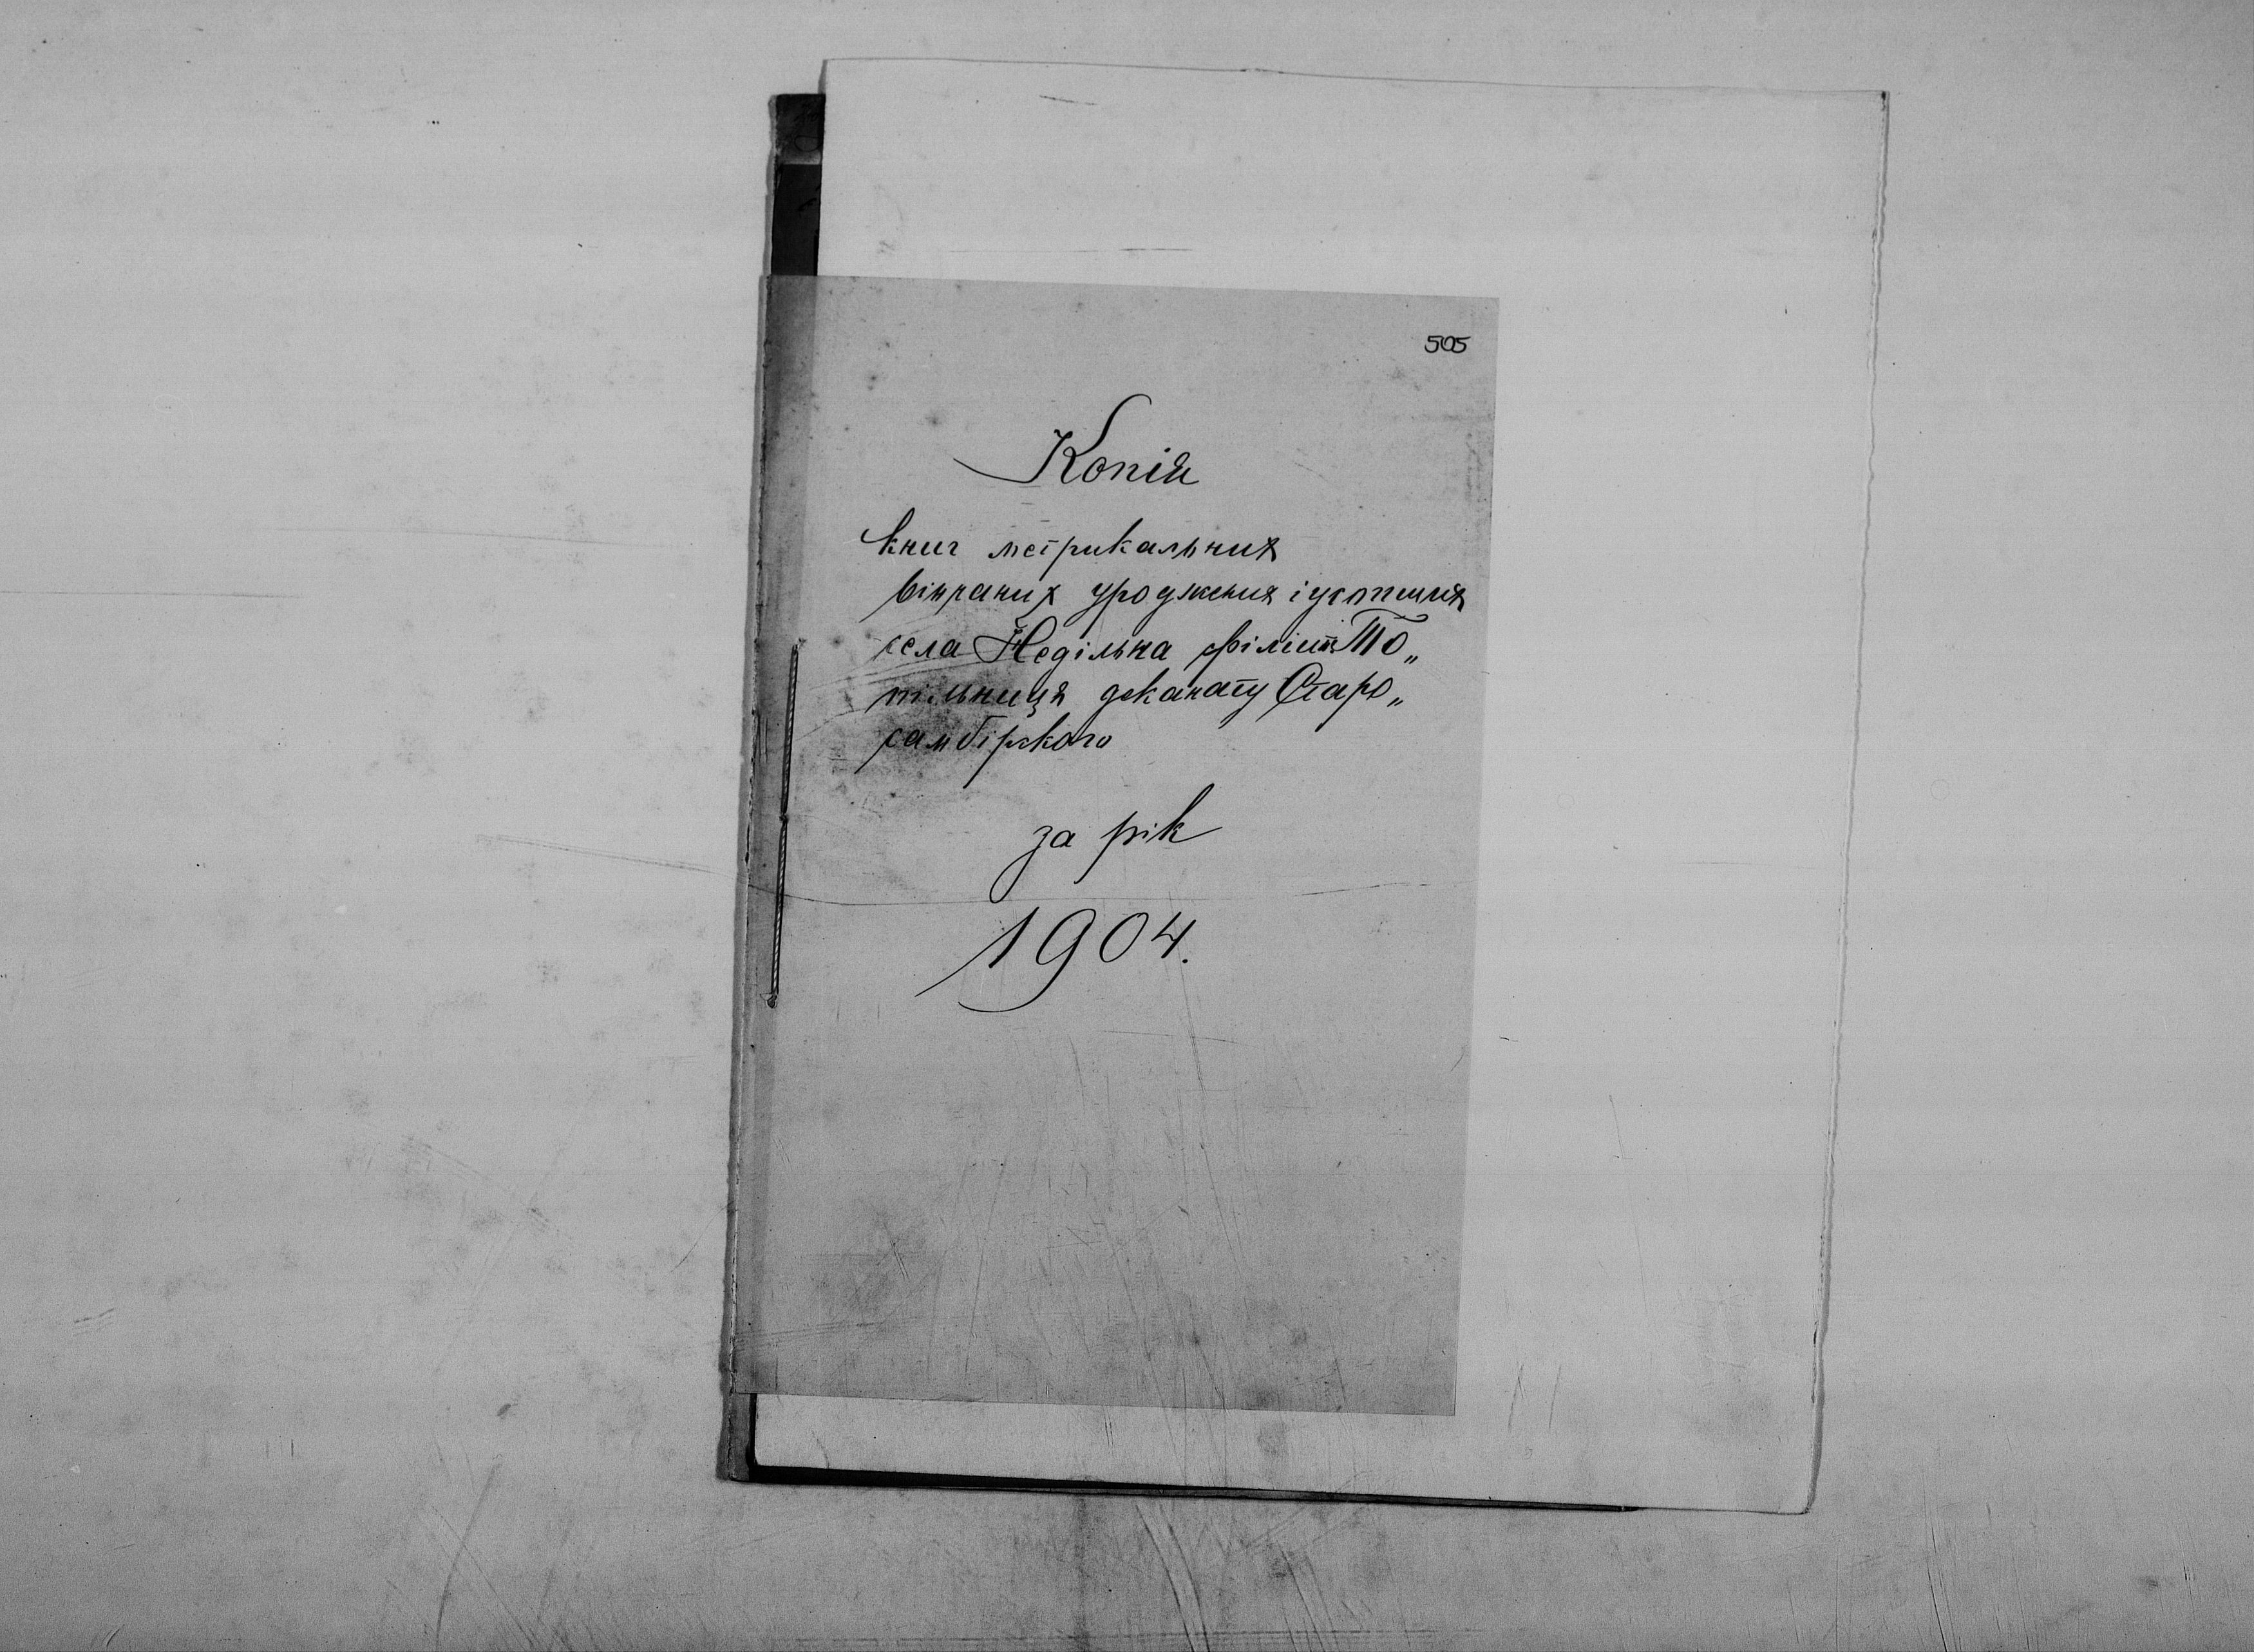 505
Копія
книг метрикальних
вінчаних уродженя і усопших
села Недільна філії То„
пільниця деканату Старо„
самбірского
за рік
1904.